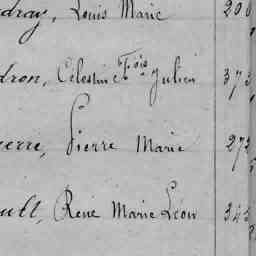 dray, Louis Marie 200
dron, Célestin Fois Julien 373
erre, Pierre Marie 273
ult, René Marie Léon 345